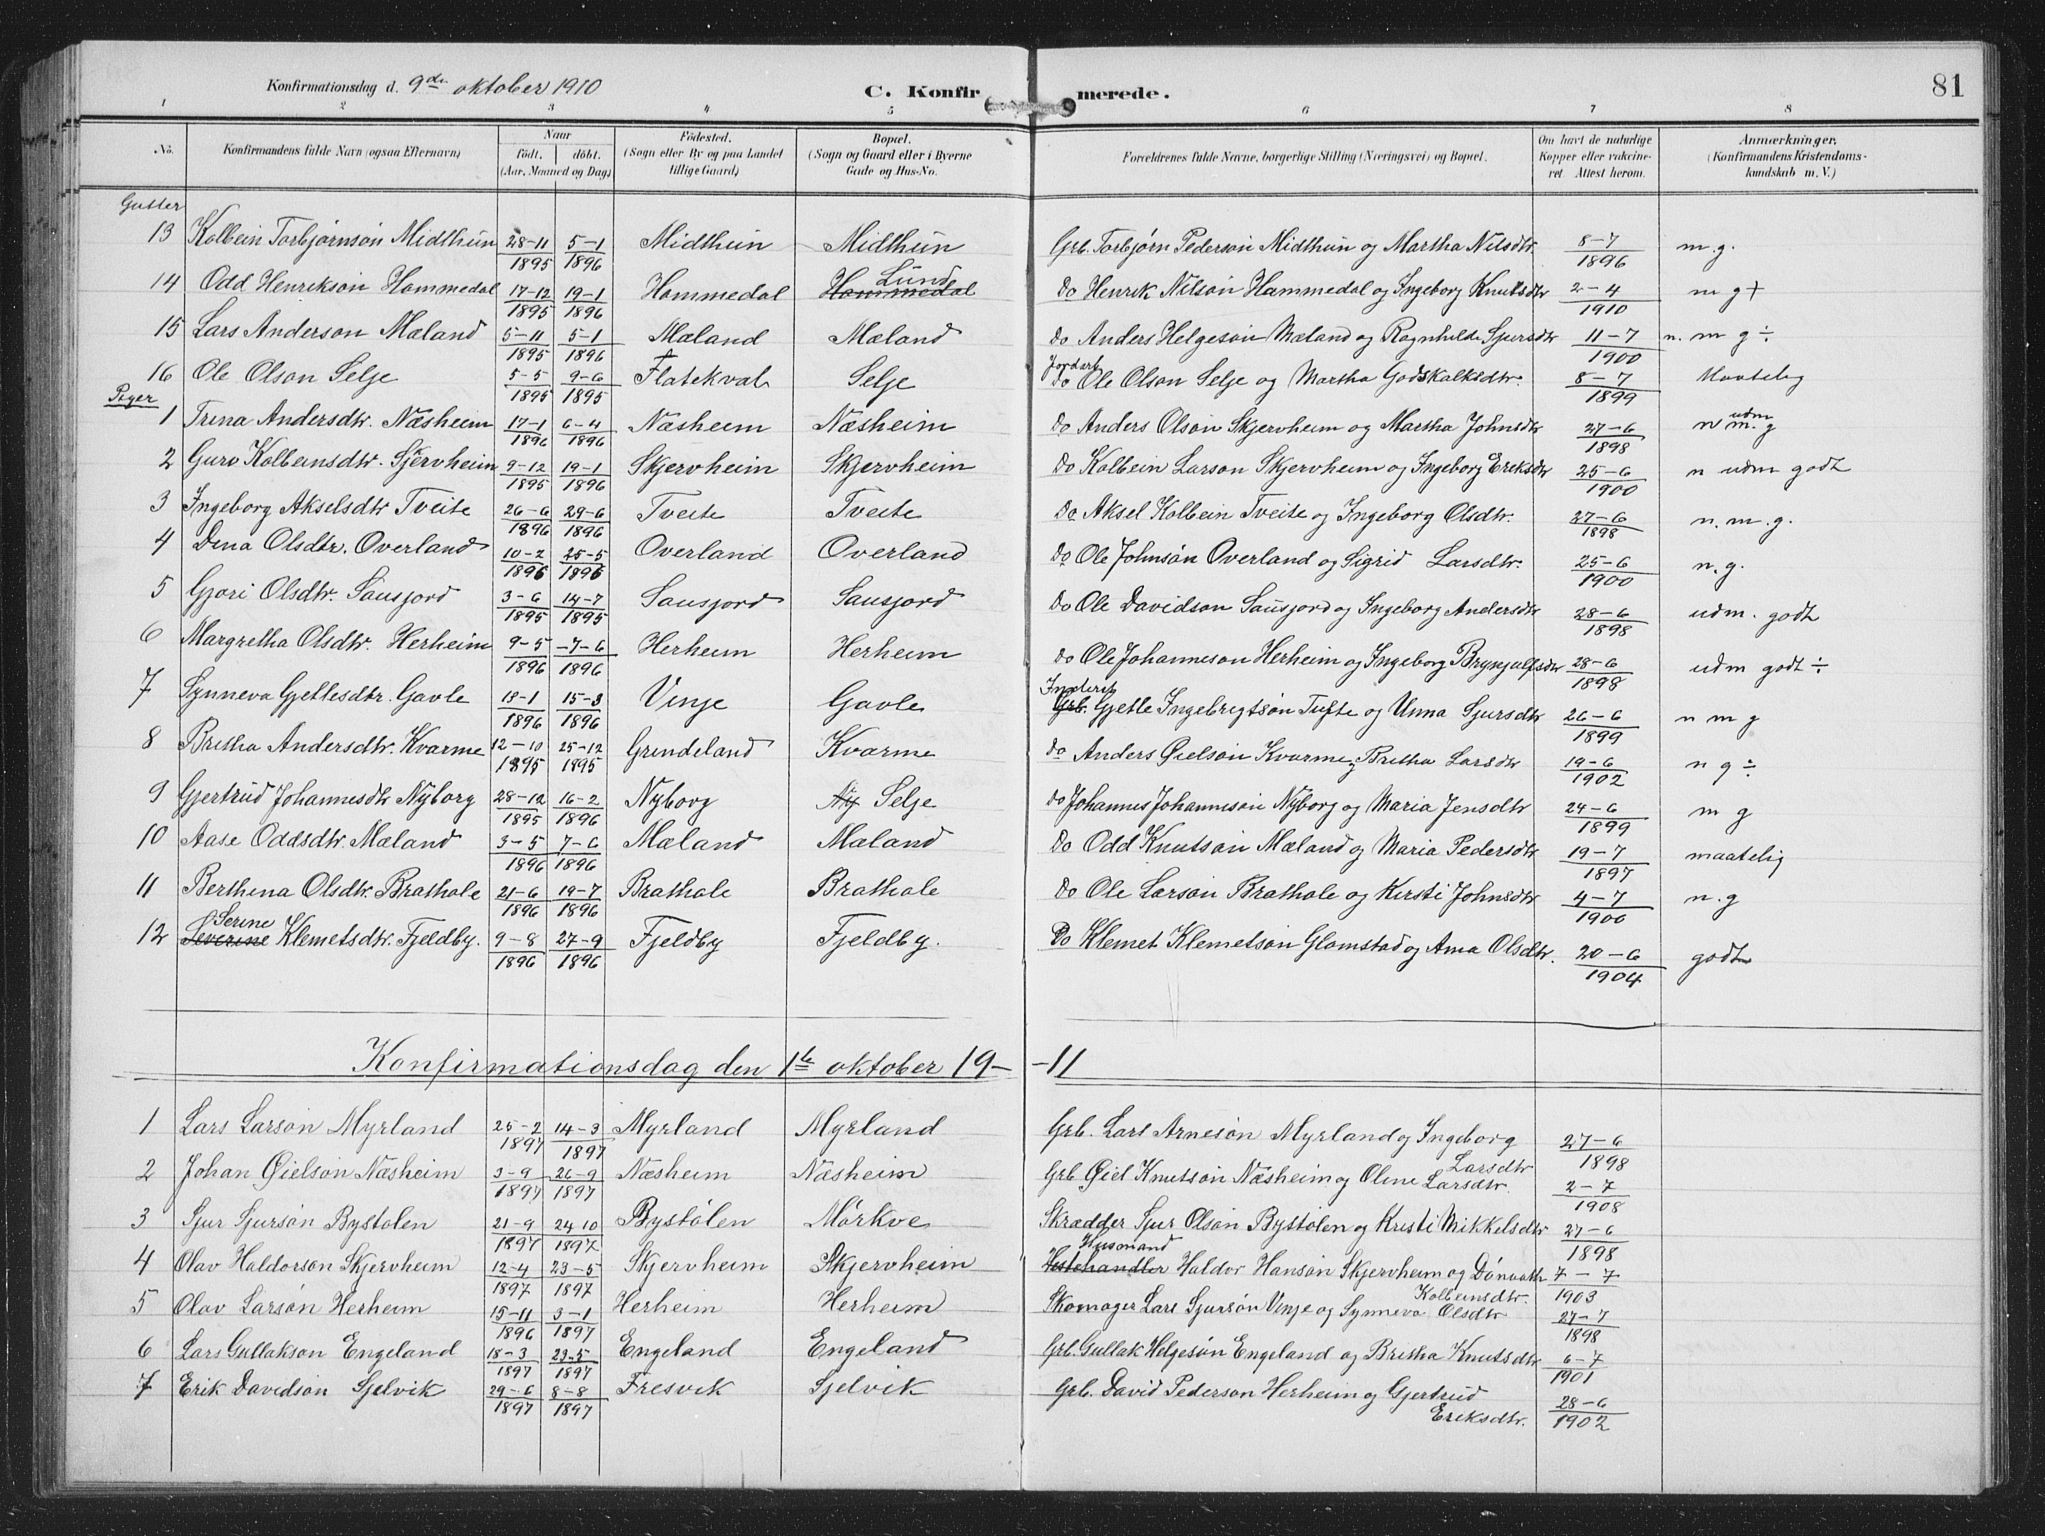 Konfirmationsdag d. 9de oktober 1910 C. Konfirmerede. 81
1 2 3 4 5 6 7 8
No. Konfirmandens fulde Navn (ogsaa Efternavn) Naar født. døbt. (Aar, Maaned og Dag) Fødested. (Sogn eller By og paa Landet tillige Gaard) Bopæl. (Sogn og Gaard eller i Byerne Gade og Hus-No. Forældrenes fulde Navne, borgerlige Stilling (Næringsvei) og Bopæl. Om havt de naturlige Kopper eller vakcineret. Attest herom. Anmærkninger. (Konfirmandens Kristendomskundskab m. V.)
Gutter
13 Kolbein Torbjørnsøn Midthun 28-11 1895 5-1 1896 Midthun Midthun Grb. Torbjørn Pedersøn Midthun og Martha Nilsdtr. 8-7 1896 m.g.
14 Odd Henriksøn Hammedal 17-12 1895 19-1 1896 Hammedal Hammedal Lund Do Henrik Nilsøn Hammedal og Ingeborg Knutsdtr 2-4 1910 m g +
15 Lars Andersøn Mæland 5-11 1895 5-1 1896 Mæland Mæland Do Anders Helgesøn Mæland og Ragnhilde Sjursdtr 11-7 1900 n. m g ÷
16 Ole Olsøn Selje 5-5 1895 9-6 1895 Flatekval Selje Do Ole Olsøn Selje og Martha Godskalksdtr. 8-7 1899 Maatelig
Piger
1 Trina Andersdtr. Næsheim 17-1 1896 6-4 1896 Næsheim Næsheim Do Anders Olsøn Skjervheim og Martha Johnsdtr 27-6 1898 n udm m. g
2 Guro Kolbeinsdtr. Sjervheim 9-12 1895 19-1 1896 Skjervheim Skjervheim Do Kolbein Larsøn Skjervheim og Ingeborg Eriksdtr 25-6 1900 n udm godt
3 Ingeborg Akselsdtr Tveite 26-6 1896 29-6 1896 Tveite Tveite Do Aksel Kolbein Tveite og Ingeborg Olsdtr. 27-6 1898 n. m. g.
4 Dina Olsdtr. Overland 10-2 1896 25-5 1896 Overland Overland Do Ole Johnsøn Overland og Sigrid Larsdtr. 25-6 1900 n. g.
5 Gjøri Olsdtr. Sausjord 3-6 1895 14-7 1895 Sausjord Sausjord Do Ole Davidsøn Sausjord og Ingeborg Andersdtr 28-6 1898 udm. godt
6 Margretha Olsdtr. Herheim 9-5 1896 -7-6 1896 Herheim Herheim Do Ole Johannesøn Herheim og Ingeborg Brynjulfsdtr 28-6 1898 udm godt ÷
7 Synneva Gjettesdtr. Gavle 18-1 1896 15-3 1896 Vinje Gavle Grb. Gjetle Ingebrigtsøn Tufte og Unna Sjursdtr 26-6 1899 n m g
8 Britha Andersdtr. Kvarme 12-10 1895 25-12 1895 Grindeland Kvarme Do Anders Øielsøn Kvarme og Britha Larsdtr 19-6 1902 n g ÷
9 Gjertrud Johannesdtr Nyborg 28-12 1895 16-2 1896 Nyborg Ny Selje Do Johannes Johannesøn Nyborg og Maria Jensdtr 24-6 1899 m g
10 Aase Oddsdtr. Mæland 3-5 1896 7-6 1896 Mæland Mæland Do Odd Knutsøn Mæland og Maria Pedersdtr 19-7 1897 maatelig
11 Berthina Olsdtr. Brathole 21-6 1896 19-7 1896 Brathole Brathole Do Ole Larsøn Brathole og Kirsti Johnsdtr 4-7 1900 n. g
12 Severine Serine Klemetsdtr. Fjeldby. 9-8 1896 27-9 1896 Fjeldby Fjeldby. Do Klemet Klemetsøn Glomstad og Ama Olsdtr. 20-6 1904 godt
Konfirmationsdag den 1te oktober 19- -11
1 Lars Larsøn Myrland 25-2 1897 14-3 1897 Myrland Myrland Grb. Lars Arnesøn Myrland og Ingeborg Larsdtr 27-6 1898
2 Johan Øielsøn Næsheim 3-9 1897 26-9 1897 Næsheim Næsheim Grb Øiel Knutsøn Næsheim og Oline Larsdtr. 2-7 1908
3 Sjur Sjursøn Bystølen 21-9 1897 24 10 1897 Bystølen Mørkve Skrædder Sjur Olsøn Bystølen og Kristi Mikkelsdtr 27-6 1898
4 Olav Haldorsøn Skjervheim 12-4 1897 23-5 1897 Skjervheim Skjervheim Hestehandler Husmand Haldor Hansøn Skjervheim og Dønvath Kolbeinsdtr. 7-7 1903
5 Olav Larsøn Herheim 15-11 1896 3-1 1897 Herheim Herheim Skomager Lars Sjursøn Vinje og Synneva Olsdtr 27-7 1898
6 Lars Gullaksøn Engeland 18-3 1897 23-5 1897 Engeland Engeland Grb. Gullak Helgesøn Engeland og Britha Knutsdtr 6-7 1901
7 Erik Davidsøn Sjelvik 29-6 1897 8-8 1897 Fresvik Sjelvik Grb. David Pedersøn Herheim og Gjertrud Eriksdtr. 28-6 1902